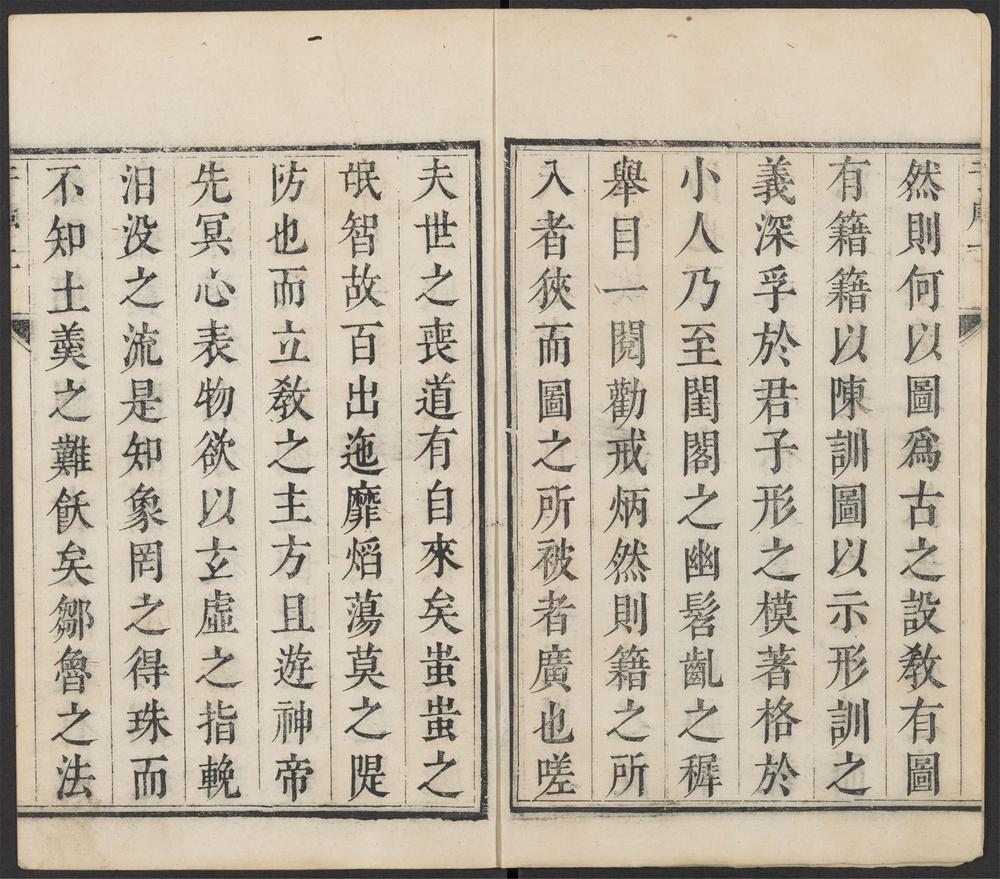 然則何以圖爲古之設敎有圖
有籍籍以陳訓圖以示形訓之
義深孚於君子形之模著格於
小人乃至閨閣之幽髫齓之穉
舉目一閱勸戒炳然則籍之所
入者狹而圖之所被者廣也嗟
夫世之喪道有自來矣蚩蚩之
氓智故百出迤靡熖蕩莫之隄
防也而立敎之主方且遊神帝
先冥心表物欲以玄虛之指輓
汨没之流是知象罔之得珠而
不知土羹之難飫矣鄒魯之法